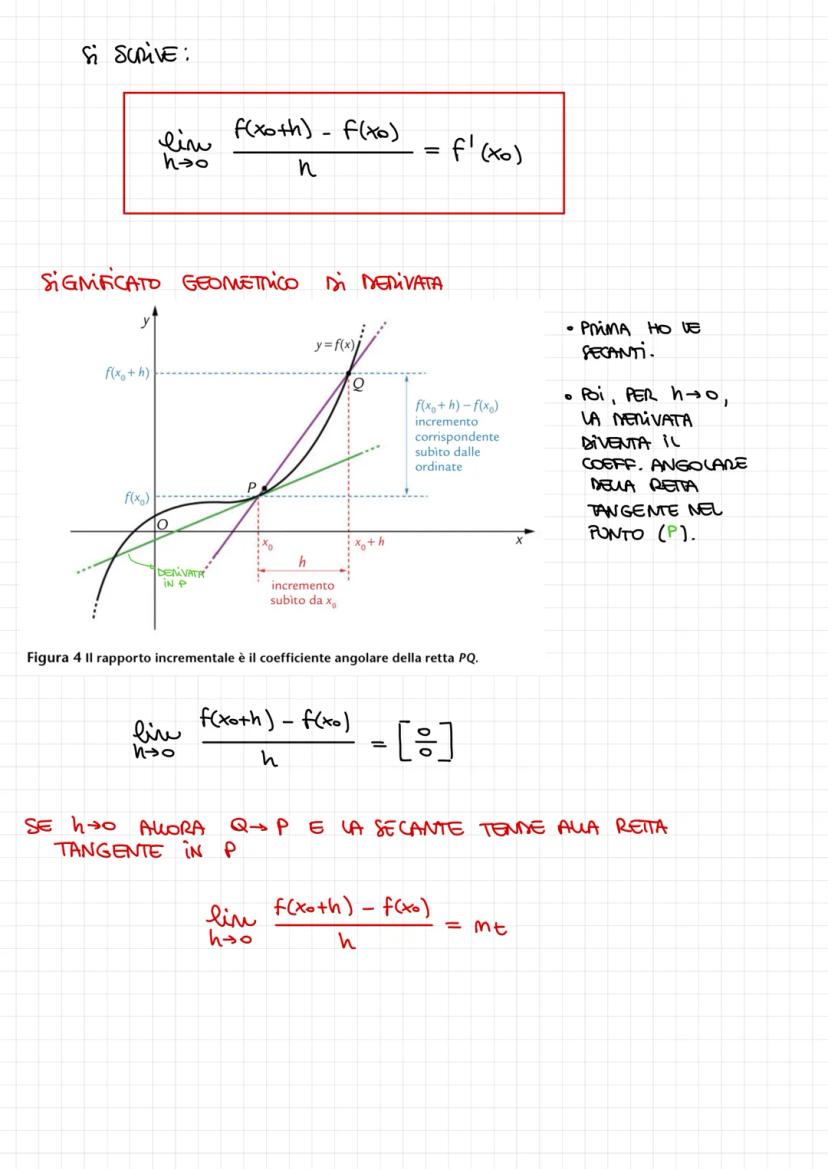 Si SCRIVE:
lim h→0 f(x₀+h) - f(x₀) / h = f'(x₀)
SIGNIFICATO GEOMETRICO DI DERIVATA
y
y = f(x)
f(x₀ + h)
Q
f(x₀ + h) – f(x₀)
incremento
corrispondente
subìto dalle
ordinate
P
f(x₀)
O
x₀
x₀ + h
x
h
DERIVATA
IN P
incremento
subìto da x₀
• PRIMA HO LE
SECANTI.
• POI, PER h→0,
LA DERIVATA
DIVENTA IL
COEFF. ANGOLARE
DELLA RETA
TANGENTE NEL
PUNTO (P).
Figura 4 Il rapporto incrementale è il coefficiente angolare della retta PQ.
lim h→0 f(x₀+h) - f(x₀) / h = [0/0]
SE h→0 ALLORA Q→P E LA SECANTE TENDE ALLA RETTA
TANGENTE IN P
lim h→0 f(x₀+h) - f(x₀) / h = mt